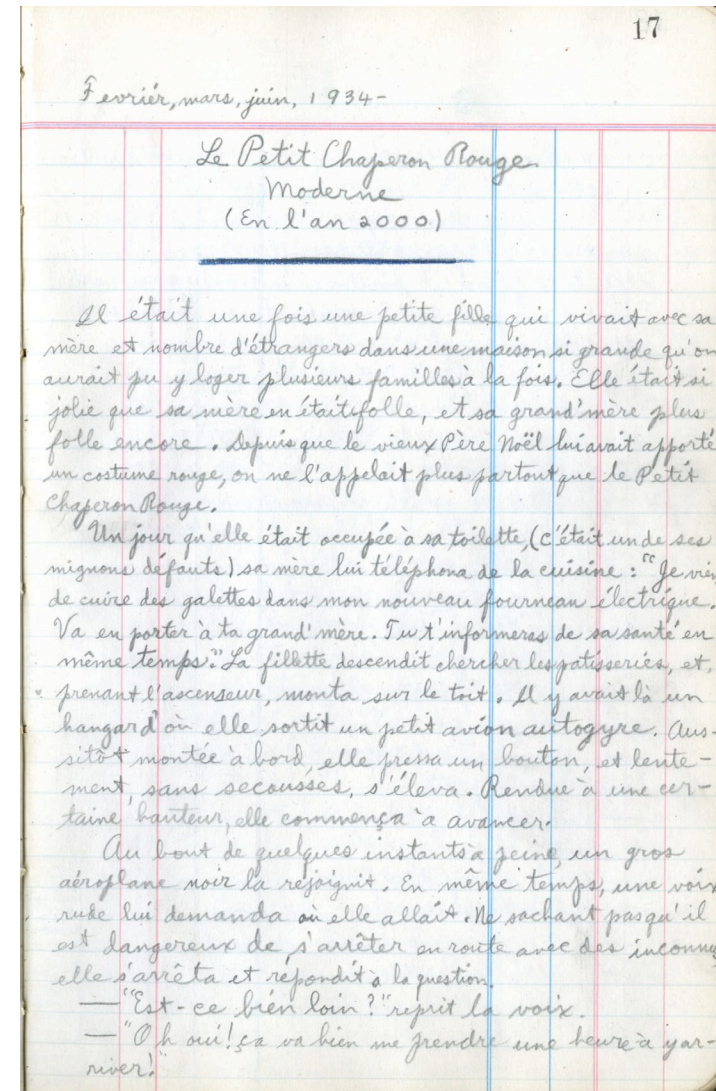 17
Fevriér, mars, juin, 1934-
Le Petit Chaperon Rouge
Moderne
(En l'an 2000)
Il était une fois une petite fille qui vivait avec sa
mère et nombre d'étrangers dans une maison si grande qu'on
aurait pu y loger plusieurs familles à la fois. Elle était si
jolie que sa mère en était folle, et sa grand'mère plus
folle encore. Depuis que le vieux Père Noël lui avait apporté
un costume rouge, on ne l'appelait plus partout que le Petit
Chaperon Rouge.
Un jour qu'elle était occupée à sa toilette, (c'était un de ses
mignons défauts) sa mère lui téléphona de la cuisine : "Je vien
de cuire des galettes dans mon nouveau fourneau électrique.
Va en porter à ta grand'mère. Tu t'informeras de sa santé en
même temps." La fillette descendit chercher les patisseries, et,
prenant l'ascenseur, monta sur le toit. Il y avait là un
hangard où elle sortit un petit avion autogyre. Aus-
sitôt montée à bord, elle pressa un bouton, et lente-
ment, sans secousses, s'éleva. Rendue à une cer-
taine hauteur, elle commença à avancer.
Au bout de quelques instants à peine, un gros
aéroplane noir la rejoignit. En même temps, une voix
rude lui demanda où elle allait. Ne sachant pas qu'il
est dangereux de s'arrêter en route avec des inconnus
elle s'arrêta et répondit à la question.
— "Est-ce bien loin?" reprit la voix.
— "Oh oui! ça va bien me prendre une heure à y ar-
river!"